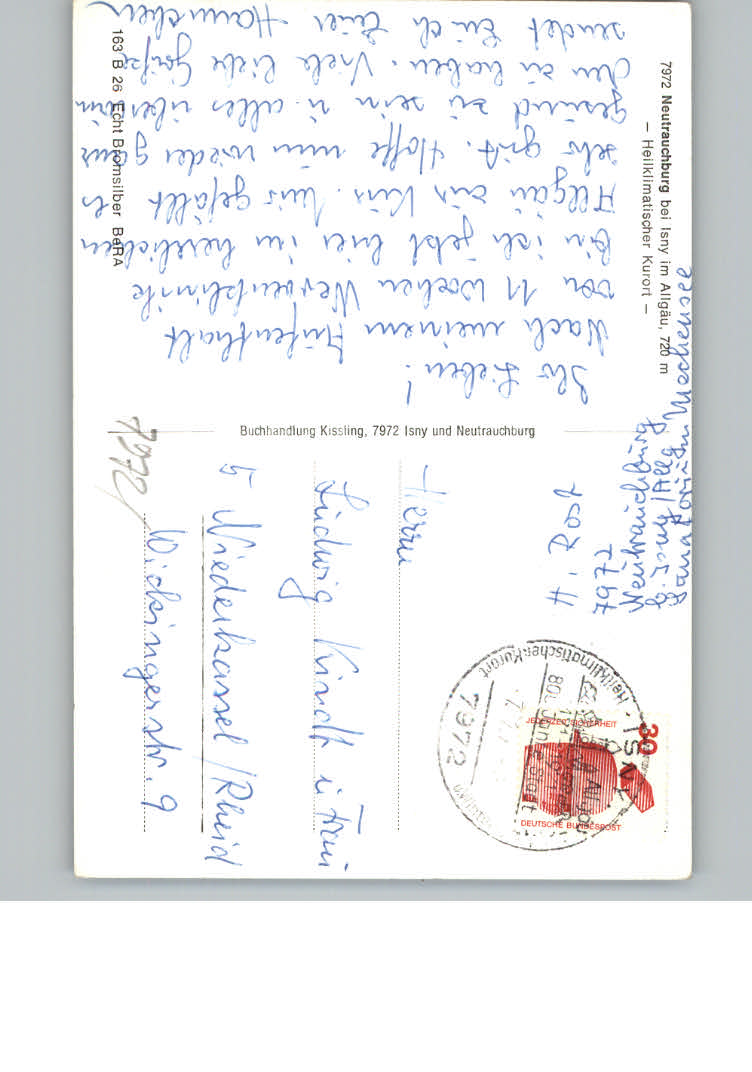 7972 Neutrauchburg bei Isny im Allgäu, 720 m
– Heilklimatischer Kurort –
Ihr Lieben!
Nach meinem Aufenthalt
von 11 Wochen Nervenklinik
bin ich jetzt hier im herrlichen
Allgäu zur Kur. Mir gefällt es
sehr gut. Hoffe nun wieder ganz
gesund zu sein u. alles überwun
den zu haben. Viele liebe Grüße
sendet Euch Euer Hannchen
163 B 26 Echt Bromsilber BeRA
Buchhandlung Kissling, 7972 Isny und Neutrauchburg
H. Rost
7972
Neutrauchburg
b. Isny/Allg
Sanatorium
30
JEDERZEIT SICHERHEIT
DEUTSCHE BUNDESPOST
7972 ISNY
Heilklimatischer Kurort
Herrn
Ludwig Kindt u Frau
5 Niederkassel/Rheid
Wickingerstr. 9
7972